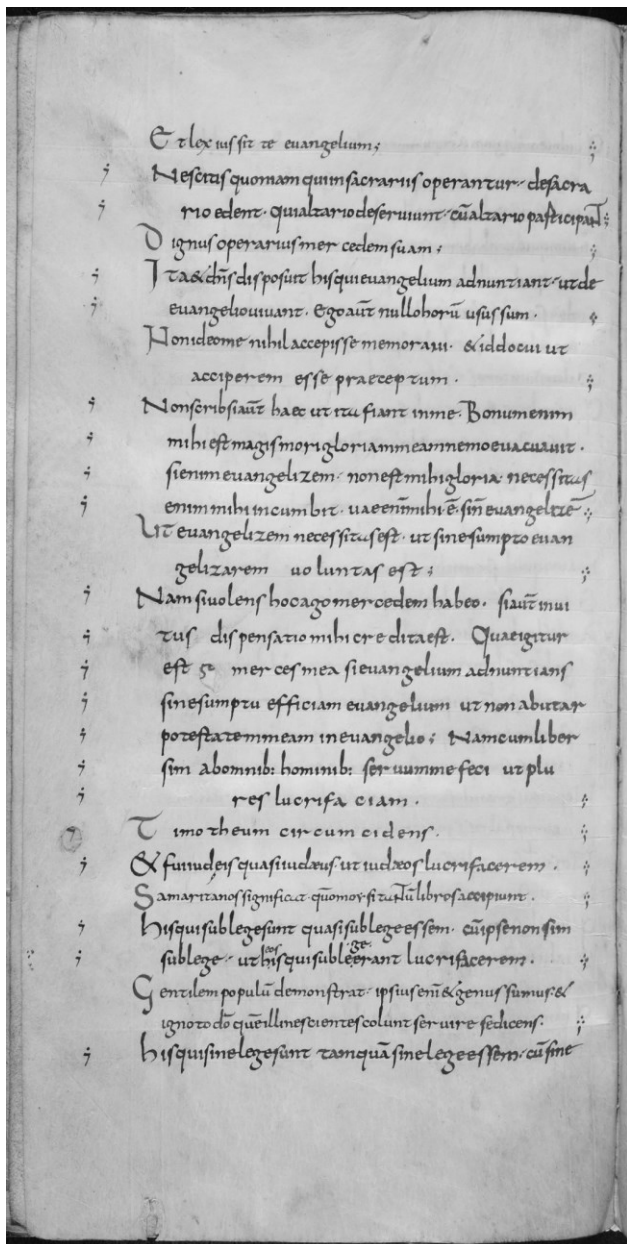 Et lex ius sit te evangelium;
Nescitis quoniam qui in sacrariis operantur. de sacra
rio edent. qui altario deserviunt. cū altario participant;
Dignus operarius mercedem suam;
Ita & dn̄s disposuit his qui evangelium adnuntiant. ut de
evangelio vivant. Ego aut̄ nullo horū usus sum.
Non ideo me nihil accepisse memoravi. & id docui ut
acciperem esse praeceptum.
Non scribsi aut̄ haec ut ita fiant in me. Bonum enim
mihi est magis mori gloriam meam nemo evacuavit.
si enim evangelizem. non est mihi gloria necessitas
enim mihi incumbit. vae enim mihi ē. si n̄ evangelizē
Ut evangelizem necessitas est. ut sine sumpto evan
gelizarem voluntas est;
Nam si volens hoc ago mercedem habeo. si aut̄ invi
tus dispensatio mihi credita est. Quae igitur
est merces mea si evangelium adnuntians
sine sumptu efficiam evangelium ut non abutar
potestatem meam in evangelio; Nam cum liber
sim ab omnib: hominib: servum me feci ut plu
res lucrifaciam.
Timotheum circumcidens.
& fui iudeis quasi iudæus. ut iudæos lucrifacerem.
Samaritanos significat. libros accipiunt.
his qui sub lege sunt quasi sub lege essem. cū ipse non sim
sub lege. ut eos his qui sub lege erant lucrifacerem.
Gentilem populū demonstrat. ipsius enī & genus sumus. &
ignoto dō quē illi nescientes colunt servire se dicens.
his qui sine lege sunt tamquā sine lege essem. cū sine